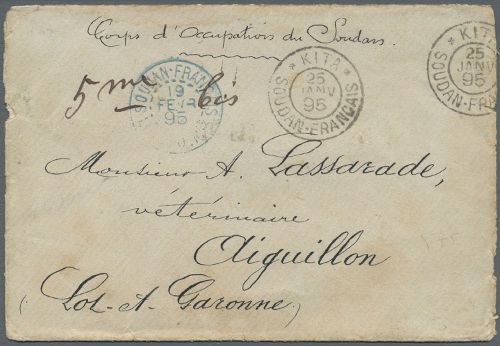 Corps d'Occupation du Soudan
5me bis
SOUDAN-FRANÇAIS
19
FEVR
95
* KITA *
25
JANV
95
SOUDAN-FRANÇAIS
* KITA *
25
JANV
95
SOUDAN-FRA
Monsieur A. Lassarade,
vétérinaire
Aiguillon
(Lot-et-Garonne)